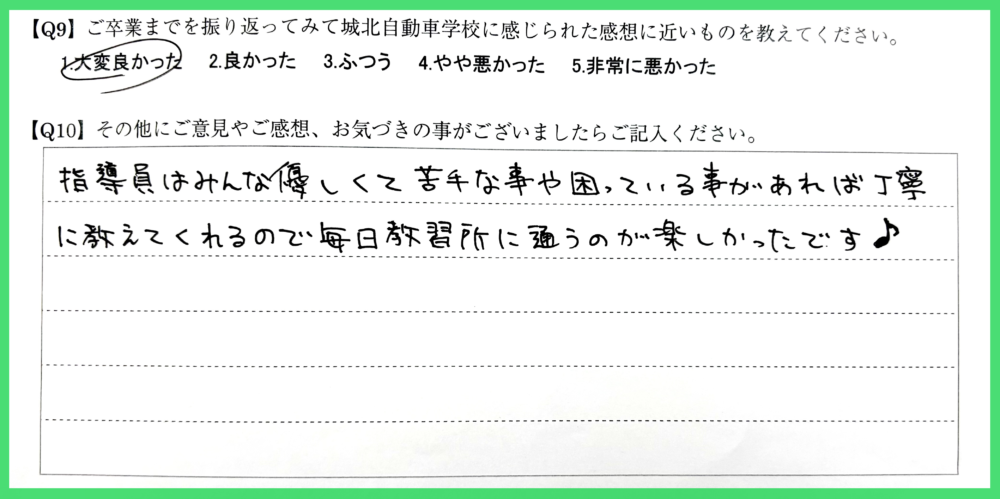 【Q9】ご卒業までを振り返ってみて城北自動車学校に感じられた感想に近いものを教えてください。
1.大変良かった 2.良かった 3.ふつう 4.やや悪かった 5.非常に悪かった
【Q10】その他にご意見やご感想、お気づきの事がございましたらご記入ください。
指導員はみんな優しくて苦手な事や困っている事があれば丁寧
に教えてくれるので毎日教習所に通うのが楽しかったです♪